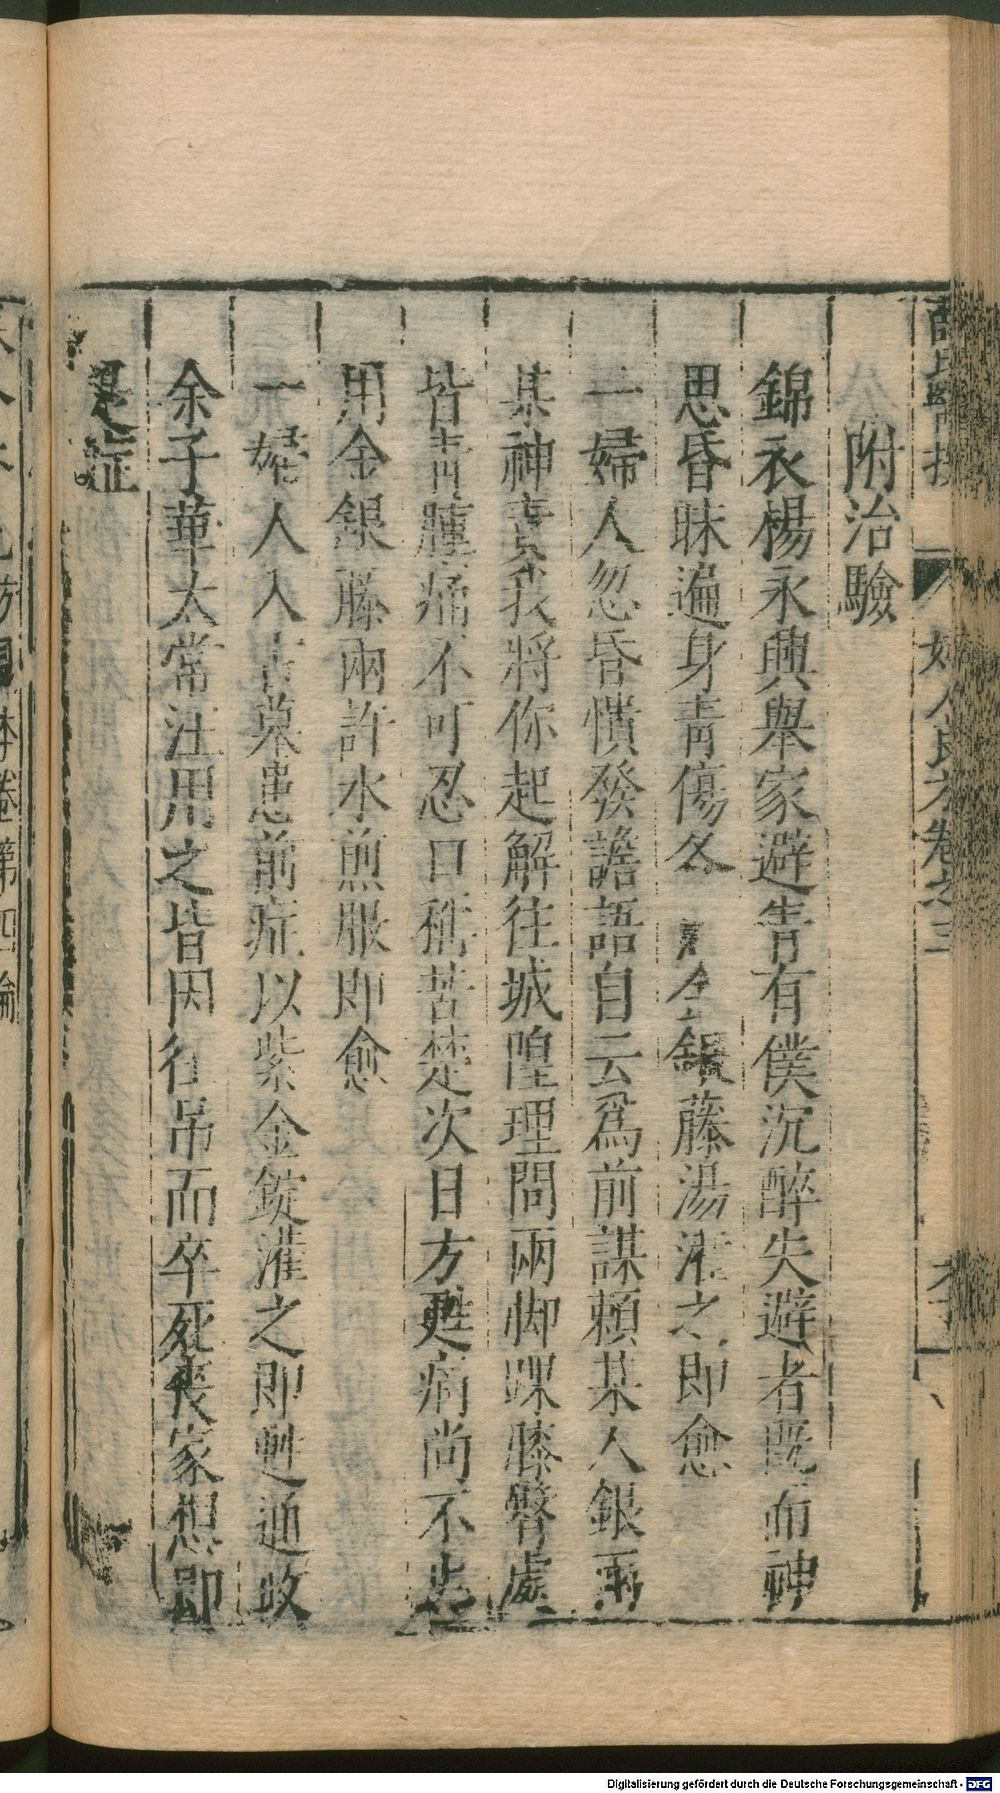 附治驗
錦衣楊永興舉家避青有僕沉醉失避者既而神
思昏昧遍身青傷各 金銀藤湯灌之即愈
一婦人忽昏憒發譫語自云為前謀賴某人銀兩
某神責我將你起解往城隍理問兩脚踝膝臀處
皆青腫痛不可忍口稱苦楚次日方甦痛尚不止
用金銀藤兩許水煎服即愈
一婦人入古墓患前症以紫金錠灌之即甦通政
余子華太常汪用之皆因往吊而卒死喪家想即
是症
Digitalisierung gefördert durch die Deutsche Forschungsgemeinschaft - DFG